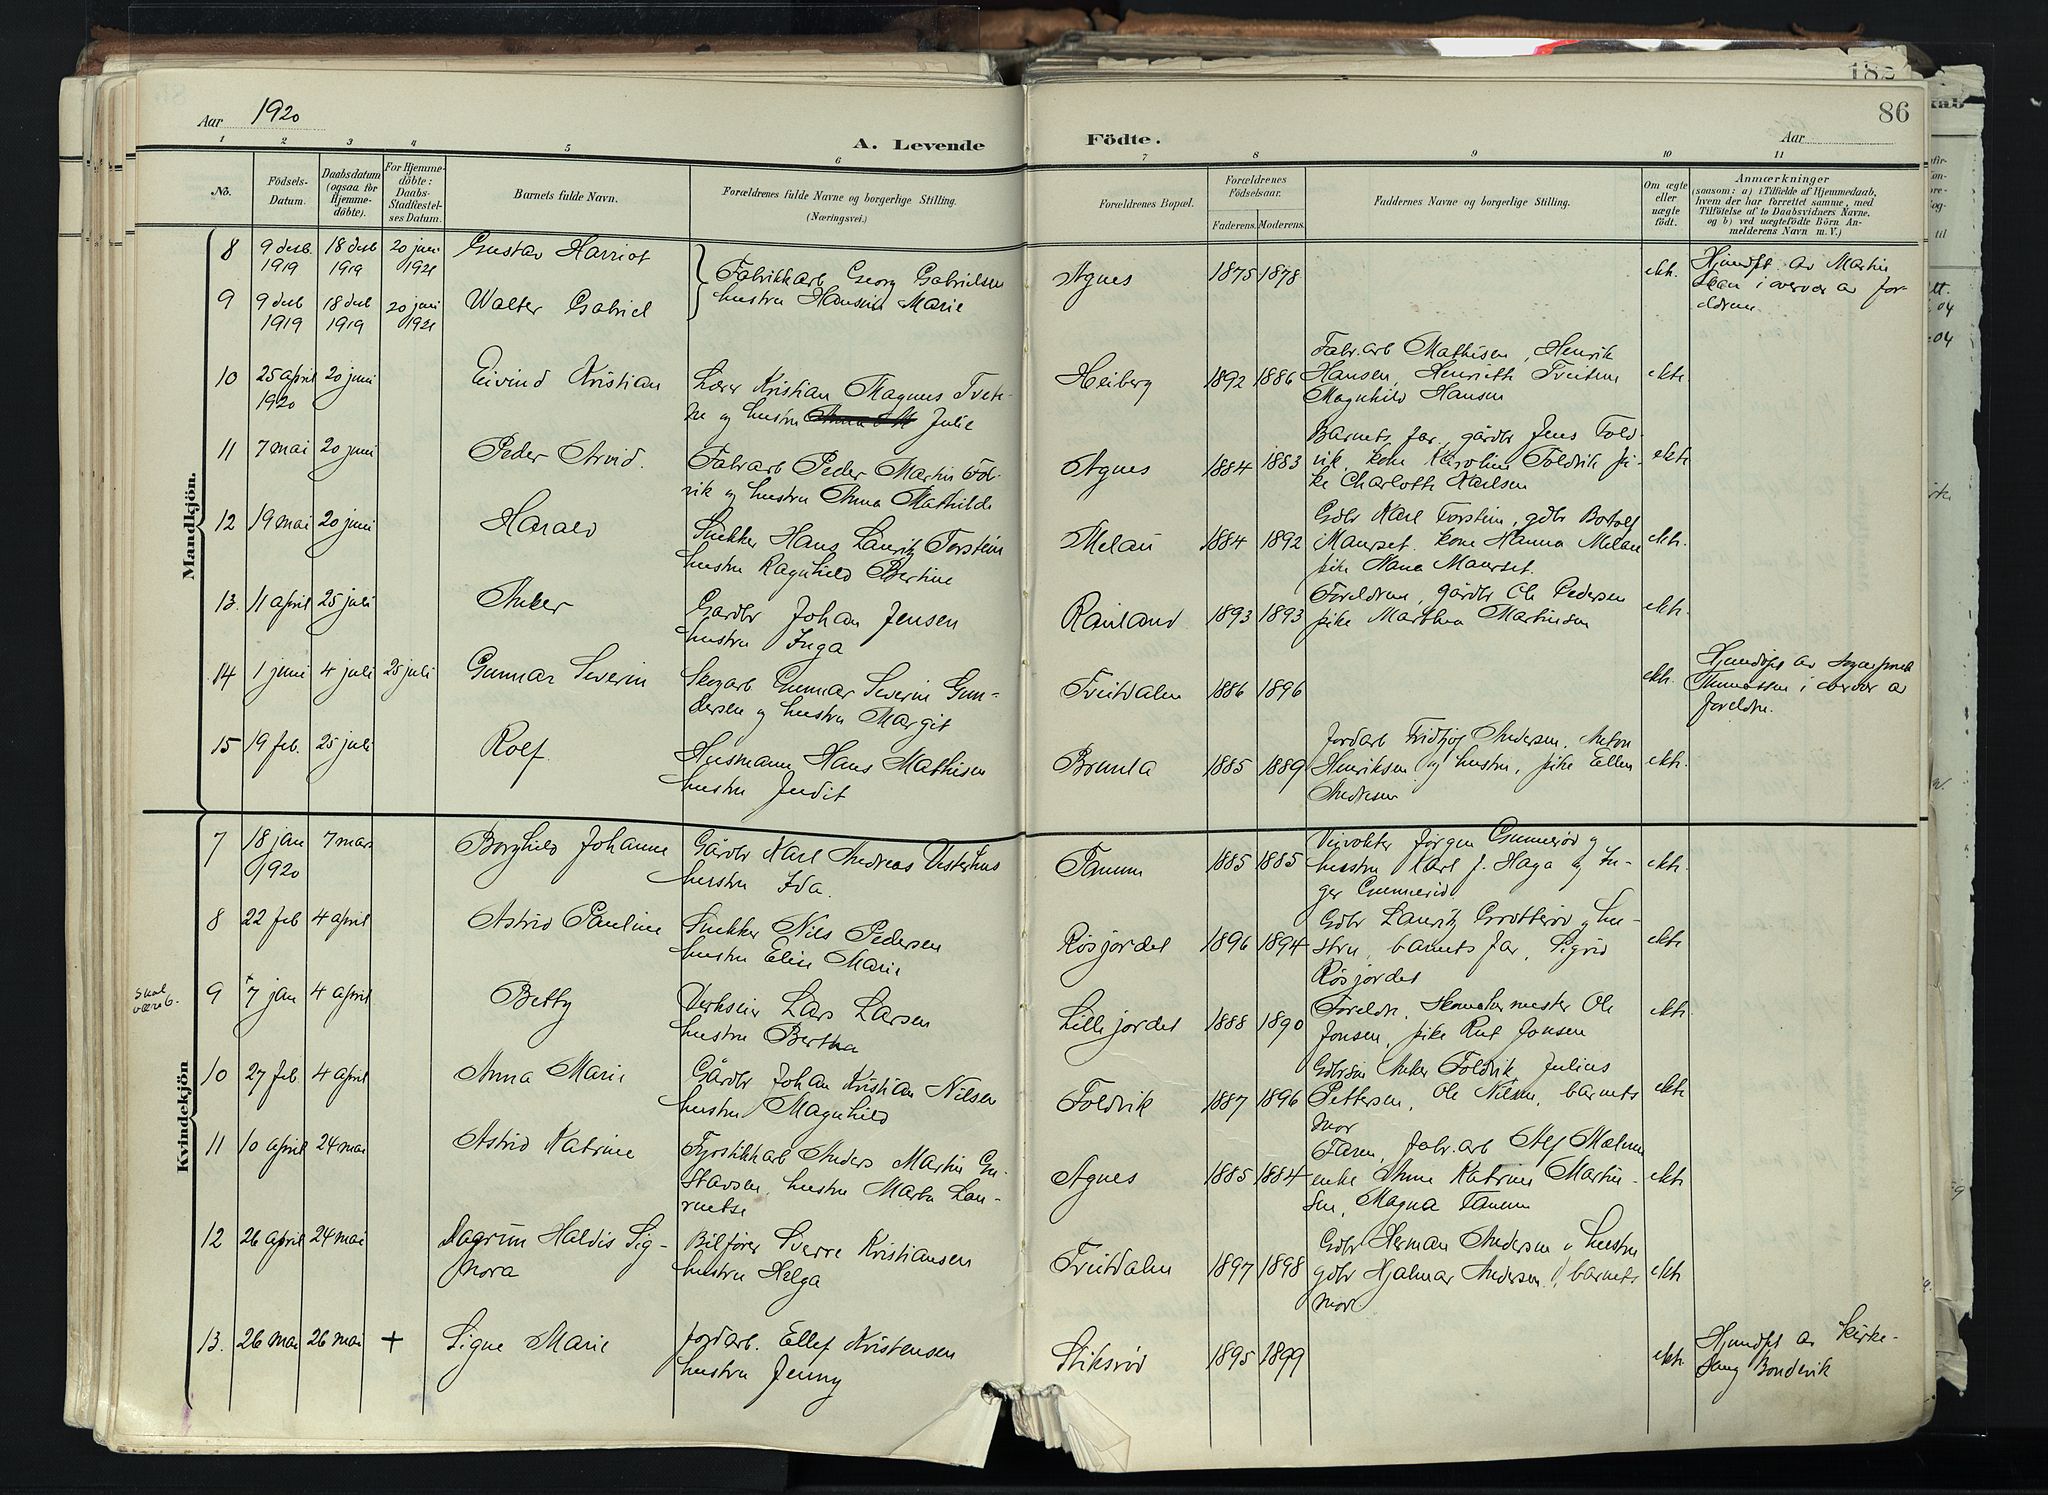 Aar 1920
A. Levende
Födte.
Aar
182
86
1 2 3 4 5 6 7 8 9 10 11
No.
Födsels-
Datum.
Daabsdatum
(ogsaa for
Hjemme-
döbte).
For Hjemme-
döbte:
Daabs-
Stadfæstel-
ses Datum.
Barnets fulde Navn.
Forældrenes fulde Navne og borgerlige Stilling.
(Næringsvei.)
Forældrenes Bopæl.
Forældrenes
Födselsaar.
Faderens. Moderens.
Faddernes Navne og borgerlige Stilling.
Om ægte
eller
uægte
födt.
Anmærkninger
(saasom: a) i Tilfælde af Hjemmedaab,
hvem der har forrettet samme, med
Tilföielse af to Daabsvidners Navne,
og b) ved uægtefödte Börn An-
melderens Navn m. V.)
Mandkjön.
8 9 desb. 1919 18 desb 1919 20 juni 1920 Gustav Harriot
Fabrikkarb Georg Gabrielsen
hustru Hansine Marie
Agnes 1875 1878 ekt.
Hjemdøpt av Martin
Skau i overvær av for-
eldrene.
9 9 desb 1919 18 desb 1919 20 juni 1920 Walter Gabriel
10 25 april 1920 20 juni Eivind Kristian
Lærer Kristian Magnus Tvete-
ne og hustru Julie
Heiberg 1892 1886
Fabr.arb Mathisen, Henrik
Hansen, Henriette Tveiten
Magnhild Hansen
ekte
11 7 mai 20 juni Peder Arvid.
Fabrarb Peder Martin Fol-
vik og hustru Anna Mathilde
Agnes 1884 1883
Barnets far, gårdbr Jens Fold-
vik, kone Karoline Foldvik pi-
ke Charlotte Karlsen
ekte
12 19 mai 20 juni Harald
Snekker Hans Lauritz Torstein
hustru Ragnhild Bertine
Melau 1884 1892
Gdbr Karl Torstein, gdbr Botolf
Maurset. kone Hanna Melau
pike Hana Maurset.
ekte.
13. 11 april 25 juli Anker
Gardbr Johan Jensen
hustru Inga
Rauland 1893 1893
Foreldrene, gårdbr Ole Pedersen
pike Marthea Martinsen
ekte.
14 1 juni 4 juli 25 juli Gunnar Severin
Skogarb Gunnar Severin Gun-
dersen og hustru Margit
Tveitdalen 1886 1896 ekte.
Hjemdøpt av sogneprest
Thomassen i overvær av
foreldre.
15 19 feb. 25 juli Rolf.
Husmann Hans Mathisen
hustru Judit
Brunla 1885 1889
Jordarb Fridtjof Andersen, Anton
Henriksen og hustru, pike Ellen
Andresen
ekte.
Kvindekjön
7 18 jan 1920 7 mars Borghild Johanne
Gårdbr Karl Andreas Vesterhus
hustru Ida.
Tanum 1885 1885
Veivokter Jørgen Gunnerød og
hustru Karl J. Haga og In-
ger Gunnerød
ekte.
8 22 feb 4 april Astrid Pauline
Snekker Nils Pedersen
hustru Elise Marie
Røsjordet 1896 1894
Gdbr Lauritz Grotterød og hu-
stru, barnets far, Sigrid
Røsjordet
ekte
skal
være 6.
9 +7 jan 4 april Betty
Verkseier Lars Larsen
hustru Bertha
Lillejordet 1888 1890
Foreldre, Skomakermester Ole
Jonsen, pike Rut Jonsen
ekte.
10 27 feb. 4 april Anna Marie
Gårdbr Johan Kristian Nilsen
hustru Magnhild
Foldvik 1887 1896
Gdbrsøn Anker Foldvik, Julius
Pettersen, Ole Nilsen, barnets
mor
ekte
11 10 april 24 mai Astrid Katrine
Fyrstikkarb Anders Martin Gu-
stavsen, hustru Marta Lau-
rentse
Agnes 1885 1884
Faren, fabr.arb Alf Melum
enke Anne Katrine Martin-
sen, Magna Tanum
ekte
12 26 april 24 mai Dagrun Haldis Sig-
nora
Bilfører Sverre Kristiansen
hustru Helga
Tveitdalen 1897 1898
Gdbr Herman Andersen og hustru
gdbr Hjalmar Andersen, barnets
mor.
ekte
13. 26 mai 26 mai + Signe Marie
Jordarb. Ellef Kristensen
hustru Jenny
Stiksrød 1895 1899 ekte
Hjemdøpt av kirke-
sang Bondevik